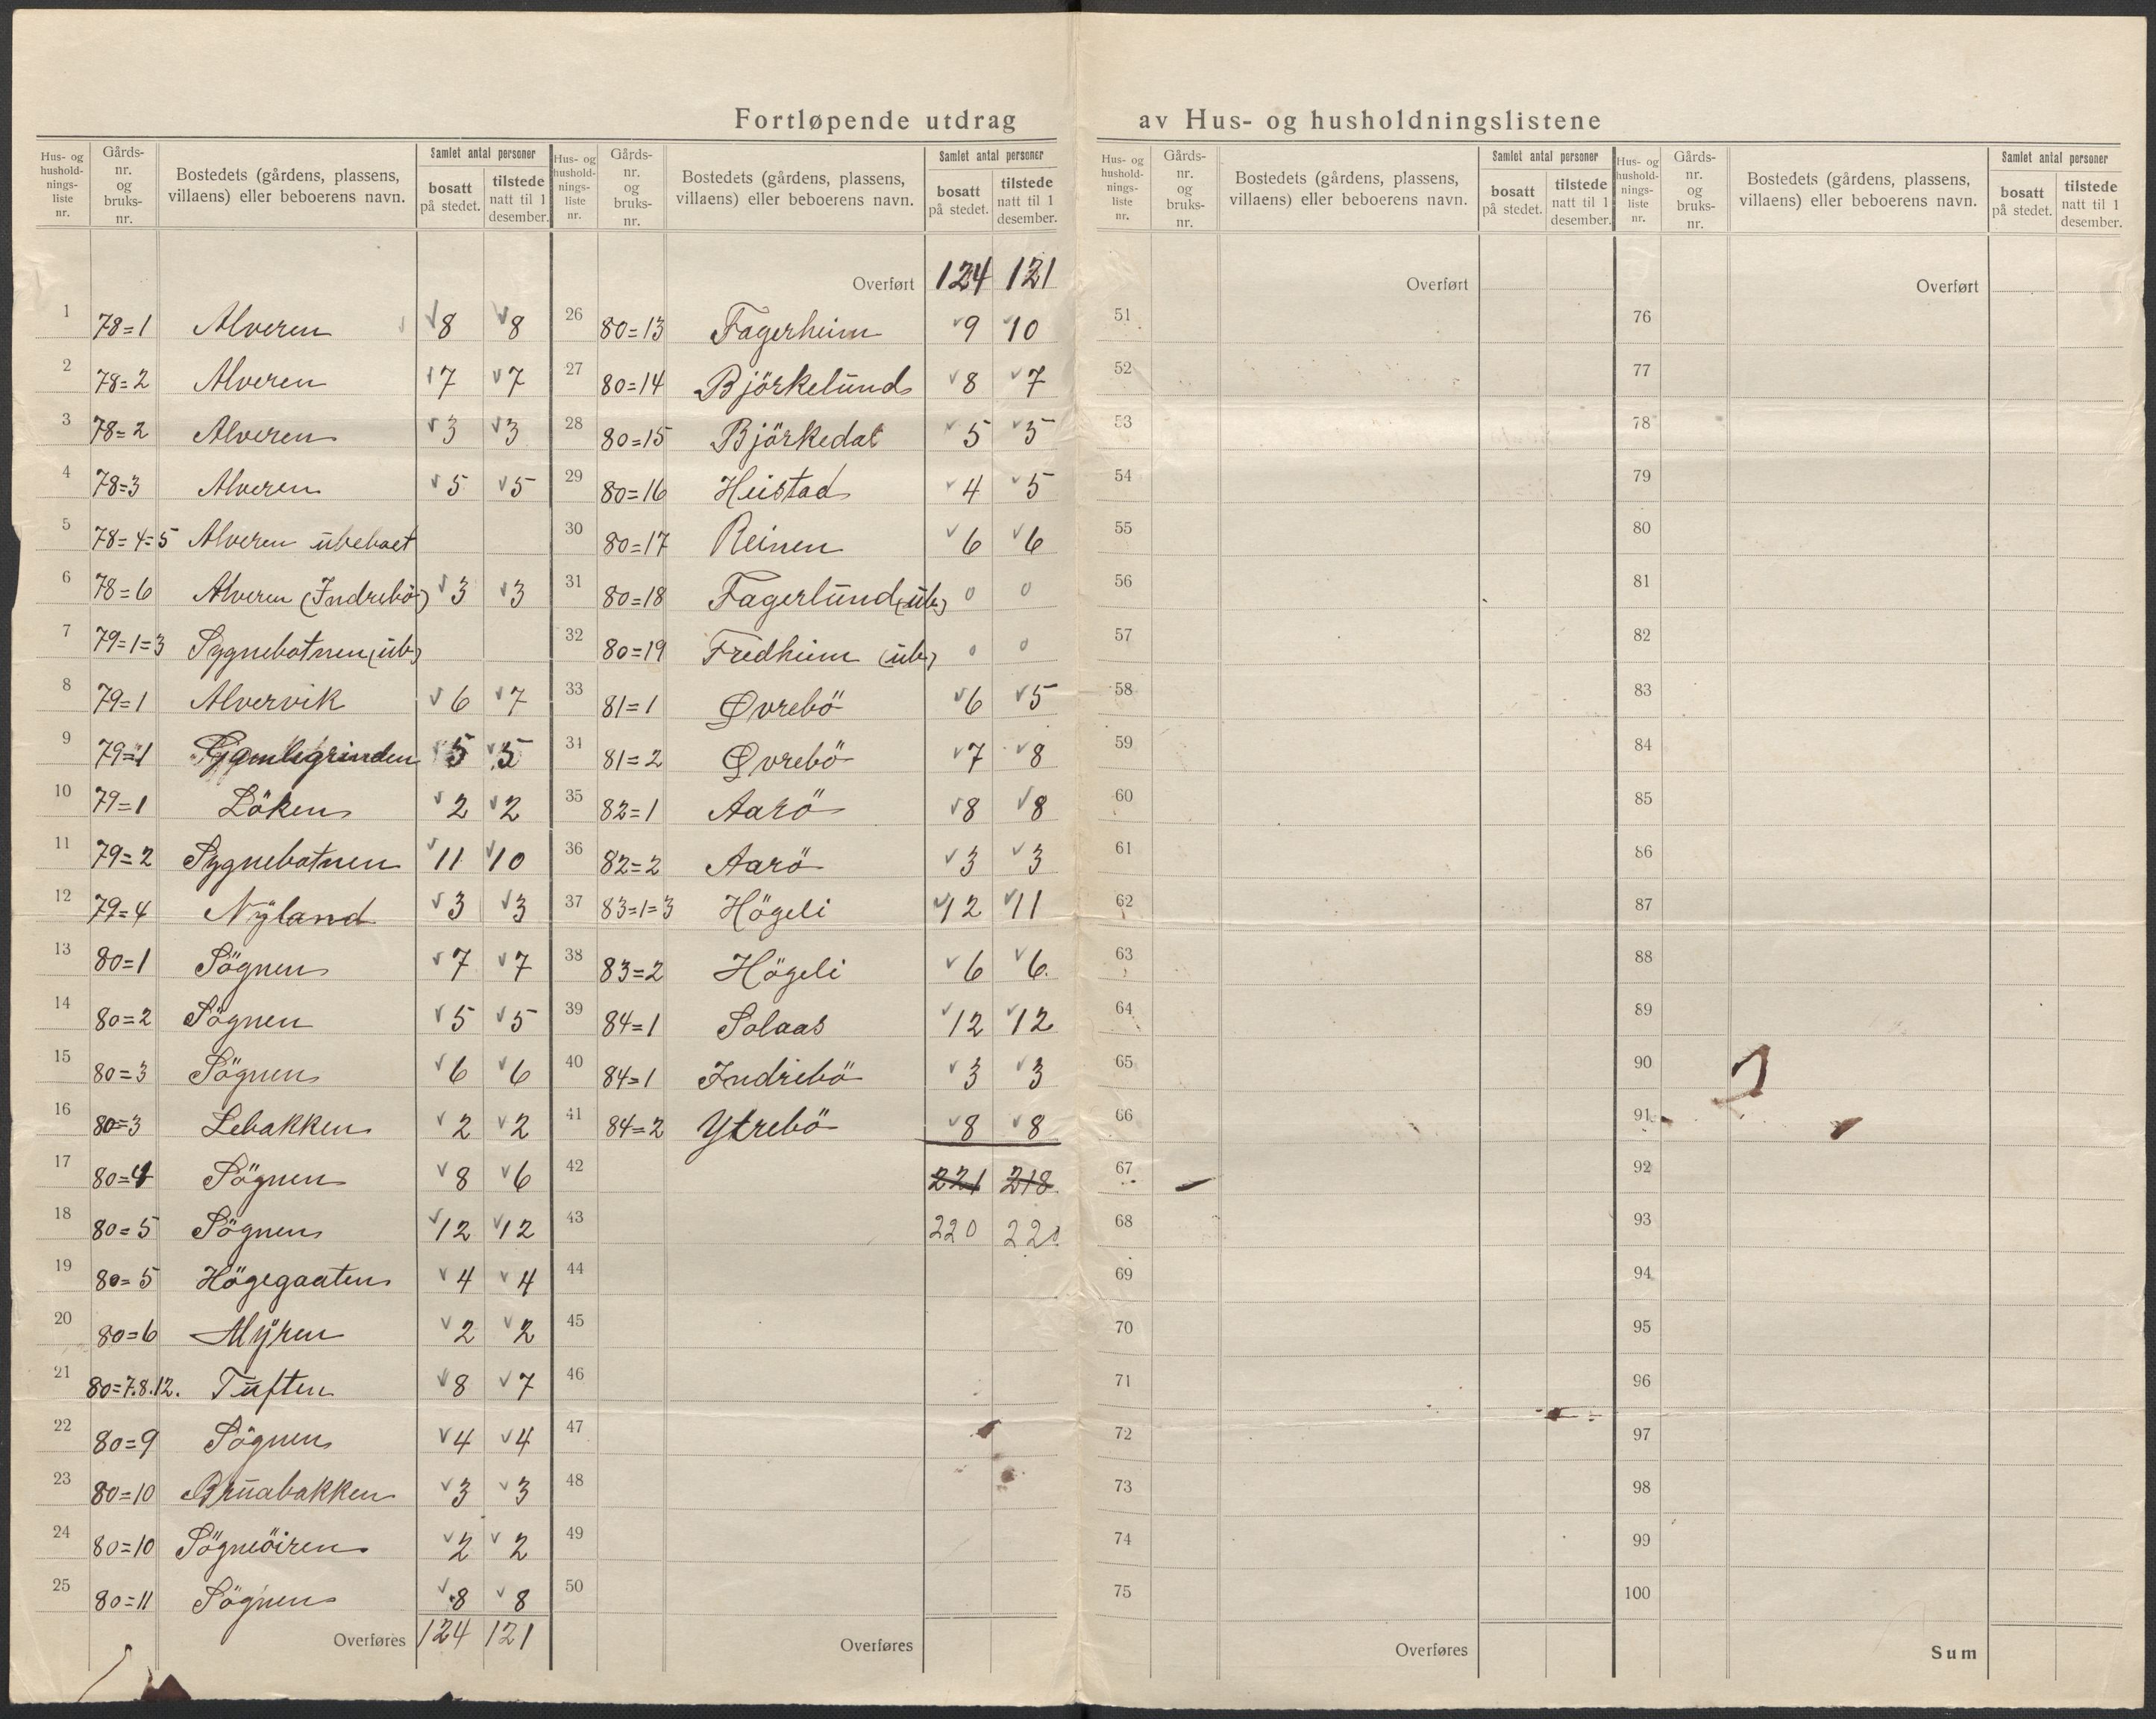 Fortløpende utdrag av Hus- og husholdningslistene
Hus- og hushold- nings- liste nr. | Gårds- nr. og bruks- nr. | Bostedets (gårdens, plassens, villaens) eller beboerens navn. | Samlet antal personer | bosatt på stedet. | tilstede natt til 1 desember.
1 78=1 Alveren 8 8
2 78=2 Alveren 7 7
3 78=2 Alveren 3 3
4 78=3 Alveren 5 5
5 78=4=5 Alveren ubeboet
6 78=6 Alveren (Indrebö) 3 3
7 79=1=3 Sygnebotnen (ub)
8 79=1 Alvervik 6 7
9 79=1 Gamlegrinden 5 5
10 79=1 Löken 2 2
11 79=2 Sygnebotnen 11 10
12 79=4 Nyland 3 3
13 80=1 Sögnen 7 7
14 80=2 Sögnen 5 5
15 80=3 Sögnen 6 6
16 80=3 Lebakken 2 2
17 80=4 Sögnen 8 6
18 80=5 Sögnen 12 12
19 80=5 Högegaaten 4 4
20 80=6 Myren 2 2
21 80=7.8.12. Tuften 8 7
22 80=9 Sögnen 4 4
23 80=10 Bruabakken 3 3
24 80=10 Sögneöiren 2 2
25 80=11 Sögnen 8 8
Overføres 124 121
Hus- og hushold- nings- liste nr. | Gårds- nr. og bruks- nr. | Bostedets (gårdens, plassens, villaens) eller beboerens navn. | Samlet antal personer | bosatt på stedet. | tilstede natt til 1 desember.
Overført 124 121
26 80=13 Fagerheim 9 10
27 80=14 Björkelund 8 7
28 80=15 Björkedal 5 5
29 80=16 Heistad 4 5
30 80=17 Reinen 6 6
31 80=18 Fagerlund (ub) 0 0
32 80=19 Fredheim (ub) 0 0
33 81=1 Øvrebö 6 5
34 81=2 Øvrebö 7 8
35 82=1 Aarö 8 8
36 82=2 Aarö 3 3
37 83=1=3 Högeli 12 11
38 83=2 Högeli 6 6
39 84=1 Solaas 12 12
40 84=1 Indrebö 3 3
41 84=2 Ytrebö 8 8
42 221 218
43 220 220
44
45
46
47
48
49
50
Overføres
Hus- og hushold- nings- liste nr. | Gårds- nr. og bruks- nr. | Bostedets (gårdens, plassens, villaens) eller beboerens navn. | Samlet antal personer | bosatt på stedet. | tilstede natt til 1 desember.
Overført
51
52
53
54
55
56
57
58
59
60
61
62
63
64
65
66
67
68
69
70
71
72
73
74
75
Overføres
Hus- og hushold- nings- liste nr. | Gårds- nr. og bruks- nr. | Bostedets (gårdens, plassens, villaens) eller beboerens navn. | Samlet antal personer | bosatt på stedet. | tilstede natt til 1 desember.
Overført
76
77
78
79
80
81
82
83
84
85
86
87
88
89
90
91
92
93
94
95
96
97
98
99
100
Sum